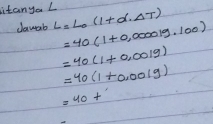 ditanya L
Jawab L = Lo (1 + α.ΔT)
= 40 (1 + 0,000019.100)
= 40 (1 + 0,0019)
= 40 (1 + 0,0019)
= 40 +
=